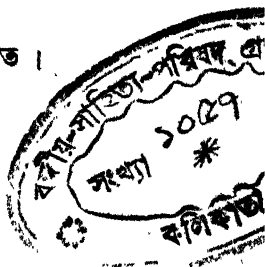 ত।
বঙ্গীয়-সাহিত্য-পরিষদ্ গ্র
সংখ্যা ১০৫৭
কলিকাতা